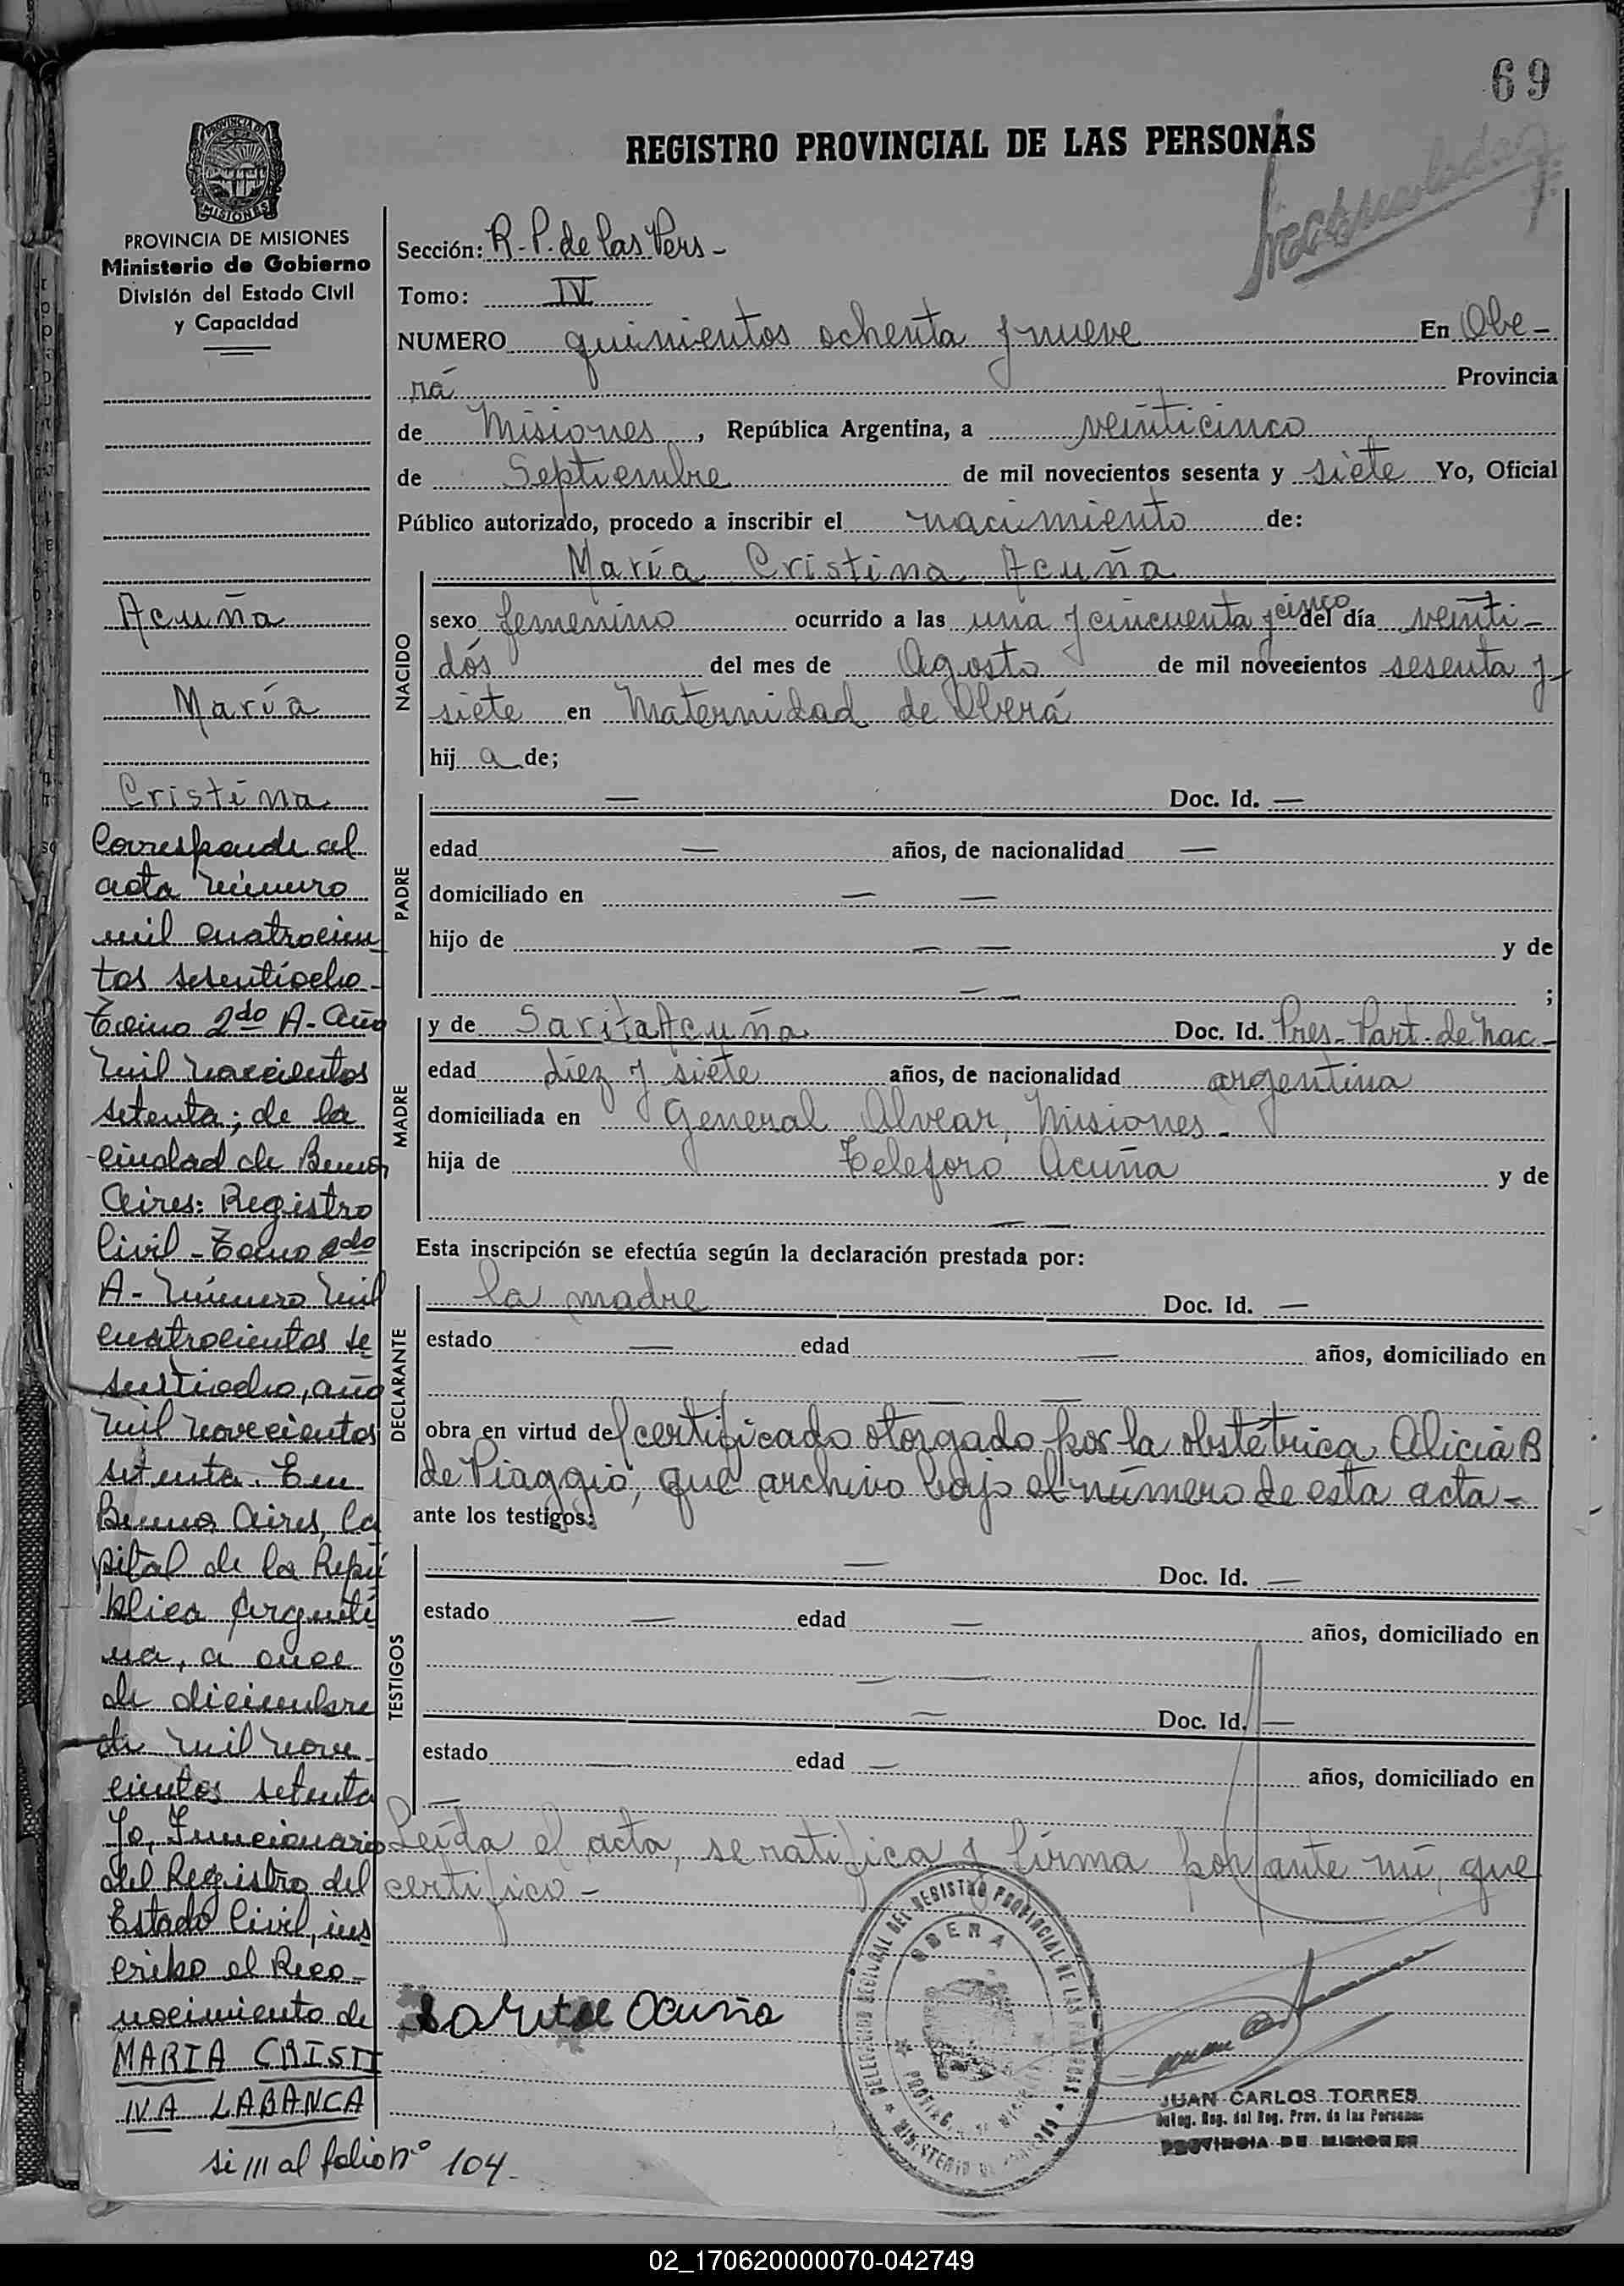 69
REGISTRO PROVINCIAL DE LAS PERSONAS
PROVINCIA DE MISIONES
PROVINCIA DE MISIONES
Ministerio de Gobierno
División del Estado Civil
y Capacidad
Acuña
María
Cristina
Corresponde al
acta número
mil cuatrocien
tos sesentiocho
Tomo 2do A- Año
mil novecientos
setenta; de la
ciudad de Buenos
Aires: Registro
Civil - Tomo 2do
A- Número mil
cuatrocientos se
sentiocho, año
mil novecientos
setenta. En
Buenos Aires, Ca
pital de la Repú
blica Argenti
na, a once
de diciembre
de mil nove
cientos setenta
Yo, Funcionario
del Registro del
Estado Civil, ins
cribo el Reco-
nocimiento de
MARIA CRISTI
NA LABANCA
si /// al folio nº 104-
Sección: R.P. de las Pers-
Tomo: IV
NUMERO quinientos ochenta y nueve En Obe-
rá Provincia
de Misiones, República Argentina, a veinticinco
de Septiembre de mil novecientos sesenta y siete Yo, Oficial
Público autorizado, procedo a inscribir el nacimiento de:
María Cristina Acuña
NACIDO
sexo femenino ocurrido a las una y cincuenta y cinco del día veinti-
dós del mes de Agosto de mil novecientos sesenta y
siete en Maternidad de Oberá
hij a de;
PADRE
— Doc. Id. —
edad — años, de nacionalidad —
domiciliado en — —
hijo de — — y de
— — ;
MADRE
y de Sarita Acuña Doc. Id. Pres. Part. de Nac-
edad diez y siete años, de nacionalidad argentina
domiciliada en General Alvear, Misiones-
hija de Teleforo Acuña y de
— —
Esta inscripción se efectúa según la declaración prestada por:
DECLARANTE
la madre Doc. Id. —
estado — edad — años, domiciliado en
— —
obra en virtud del certificado otorgado por la obstétrica Alicia B
de Piaggio, que archivo bajo el número de esta acta-
ante los testigos:
TESTIGOS
— Doc. Id. —
estado — edad — años, domiciliado en
— —
— Doc. Id. —
estado — edad — años, domiciliado en
—
Leída el acta, se ratifica y firma por ante mí, que
certifico-
Sarita Acuña
DELEGACION REGIONAL DEL REGISTRO PROVINCIAL DE LAS PERSONAS
OBERA
JUAN CARLOS TORRES
Deleg. Reg. del Reg. Prov. de las Personas
PROVINCIA DE MISIONES
02_170620000070-042749